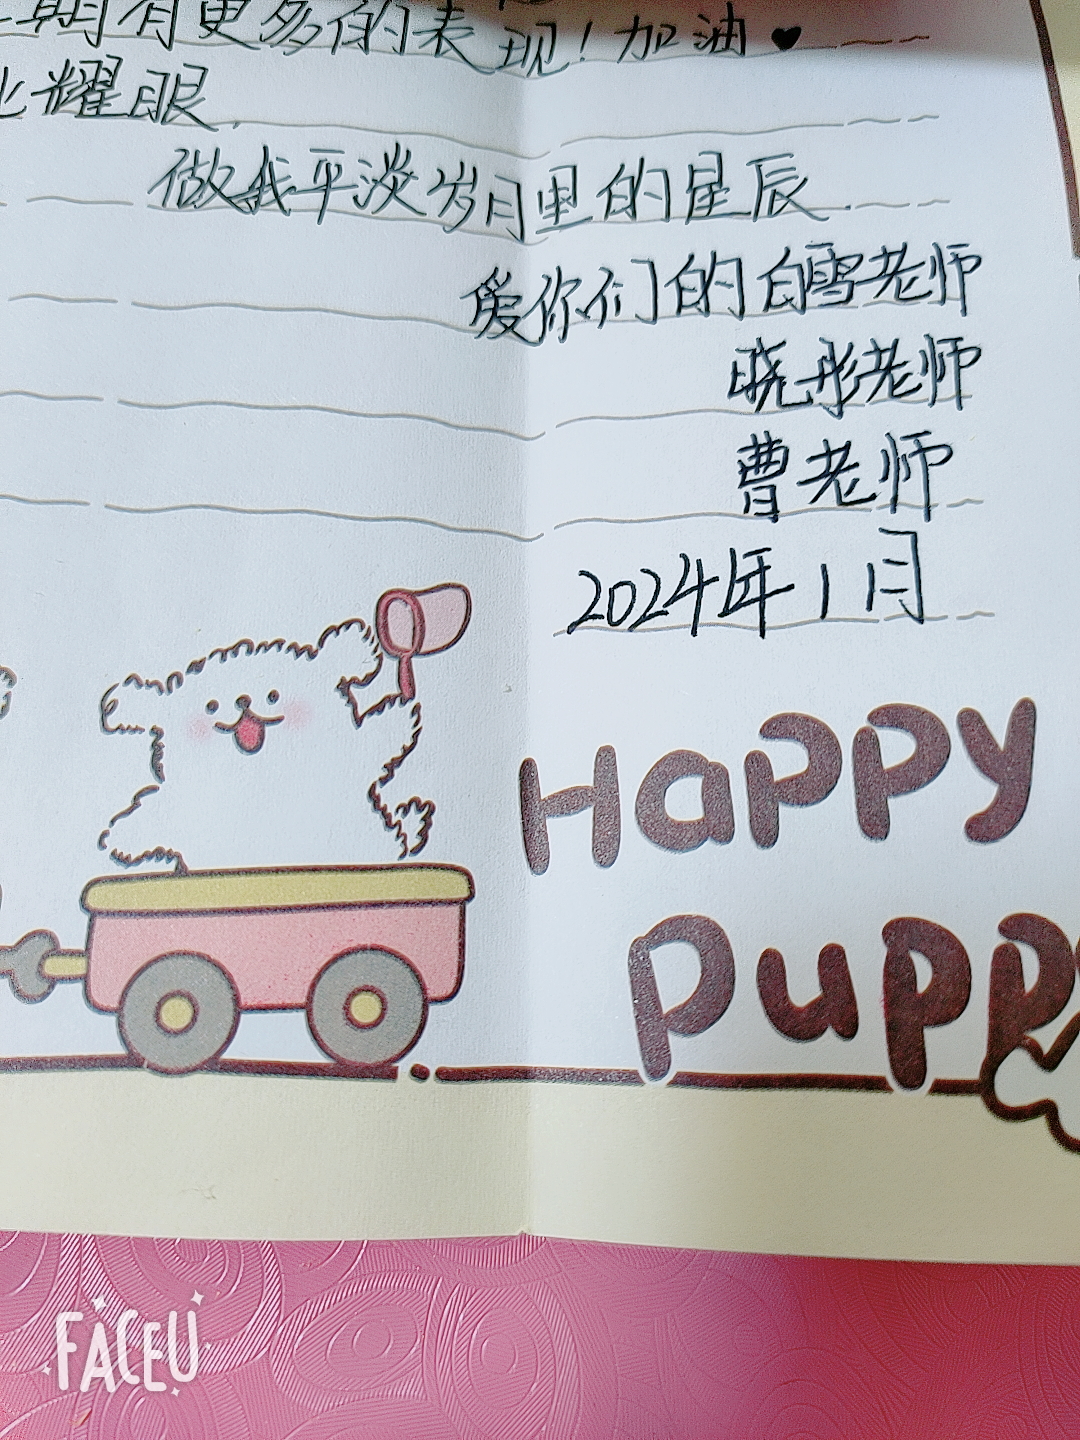 期有更多的表现！加油♥
耀眼.
做我平淡岁月里的星辰.
爱你们的白雪老师
晓彤老师
曹老师
2024年1月
Happy
Pupp
FACEU